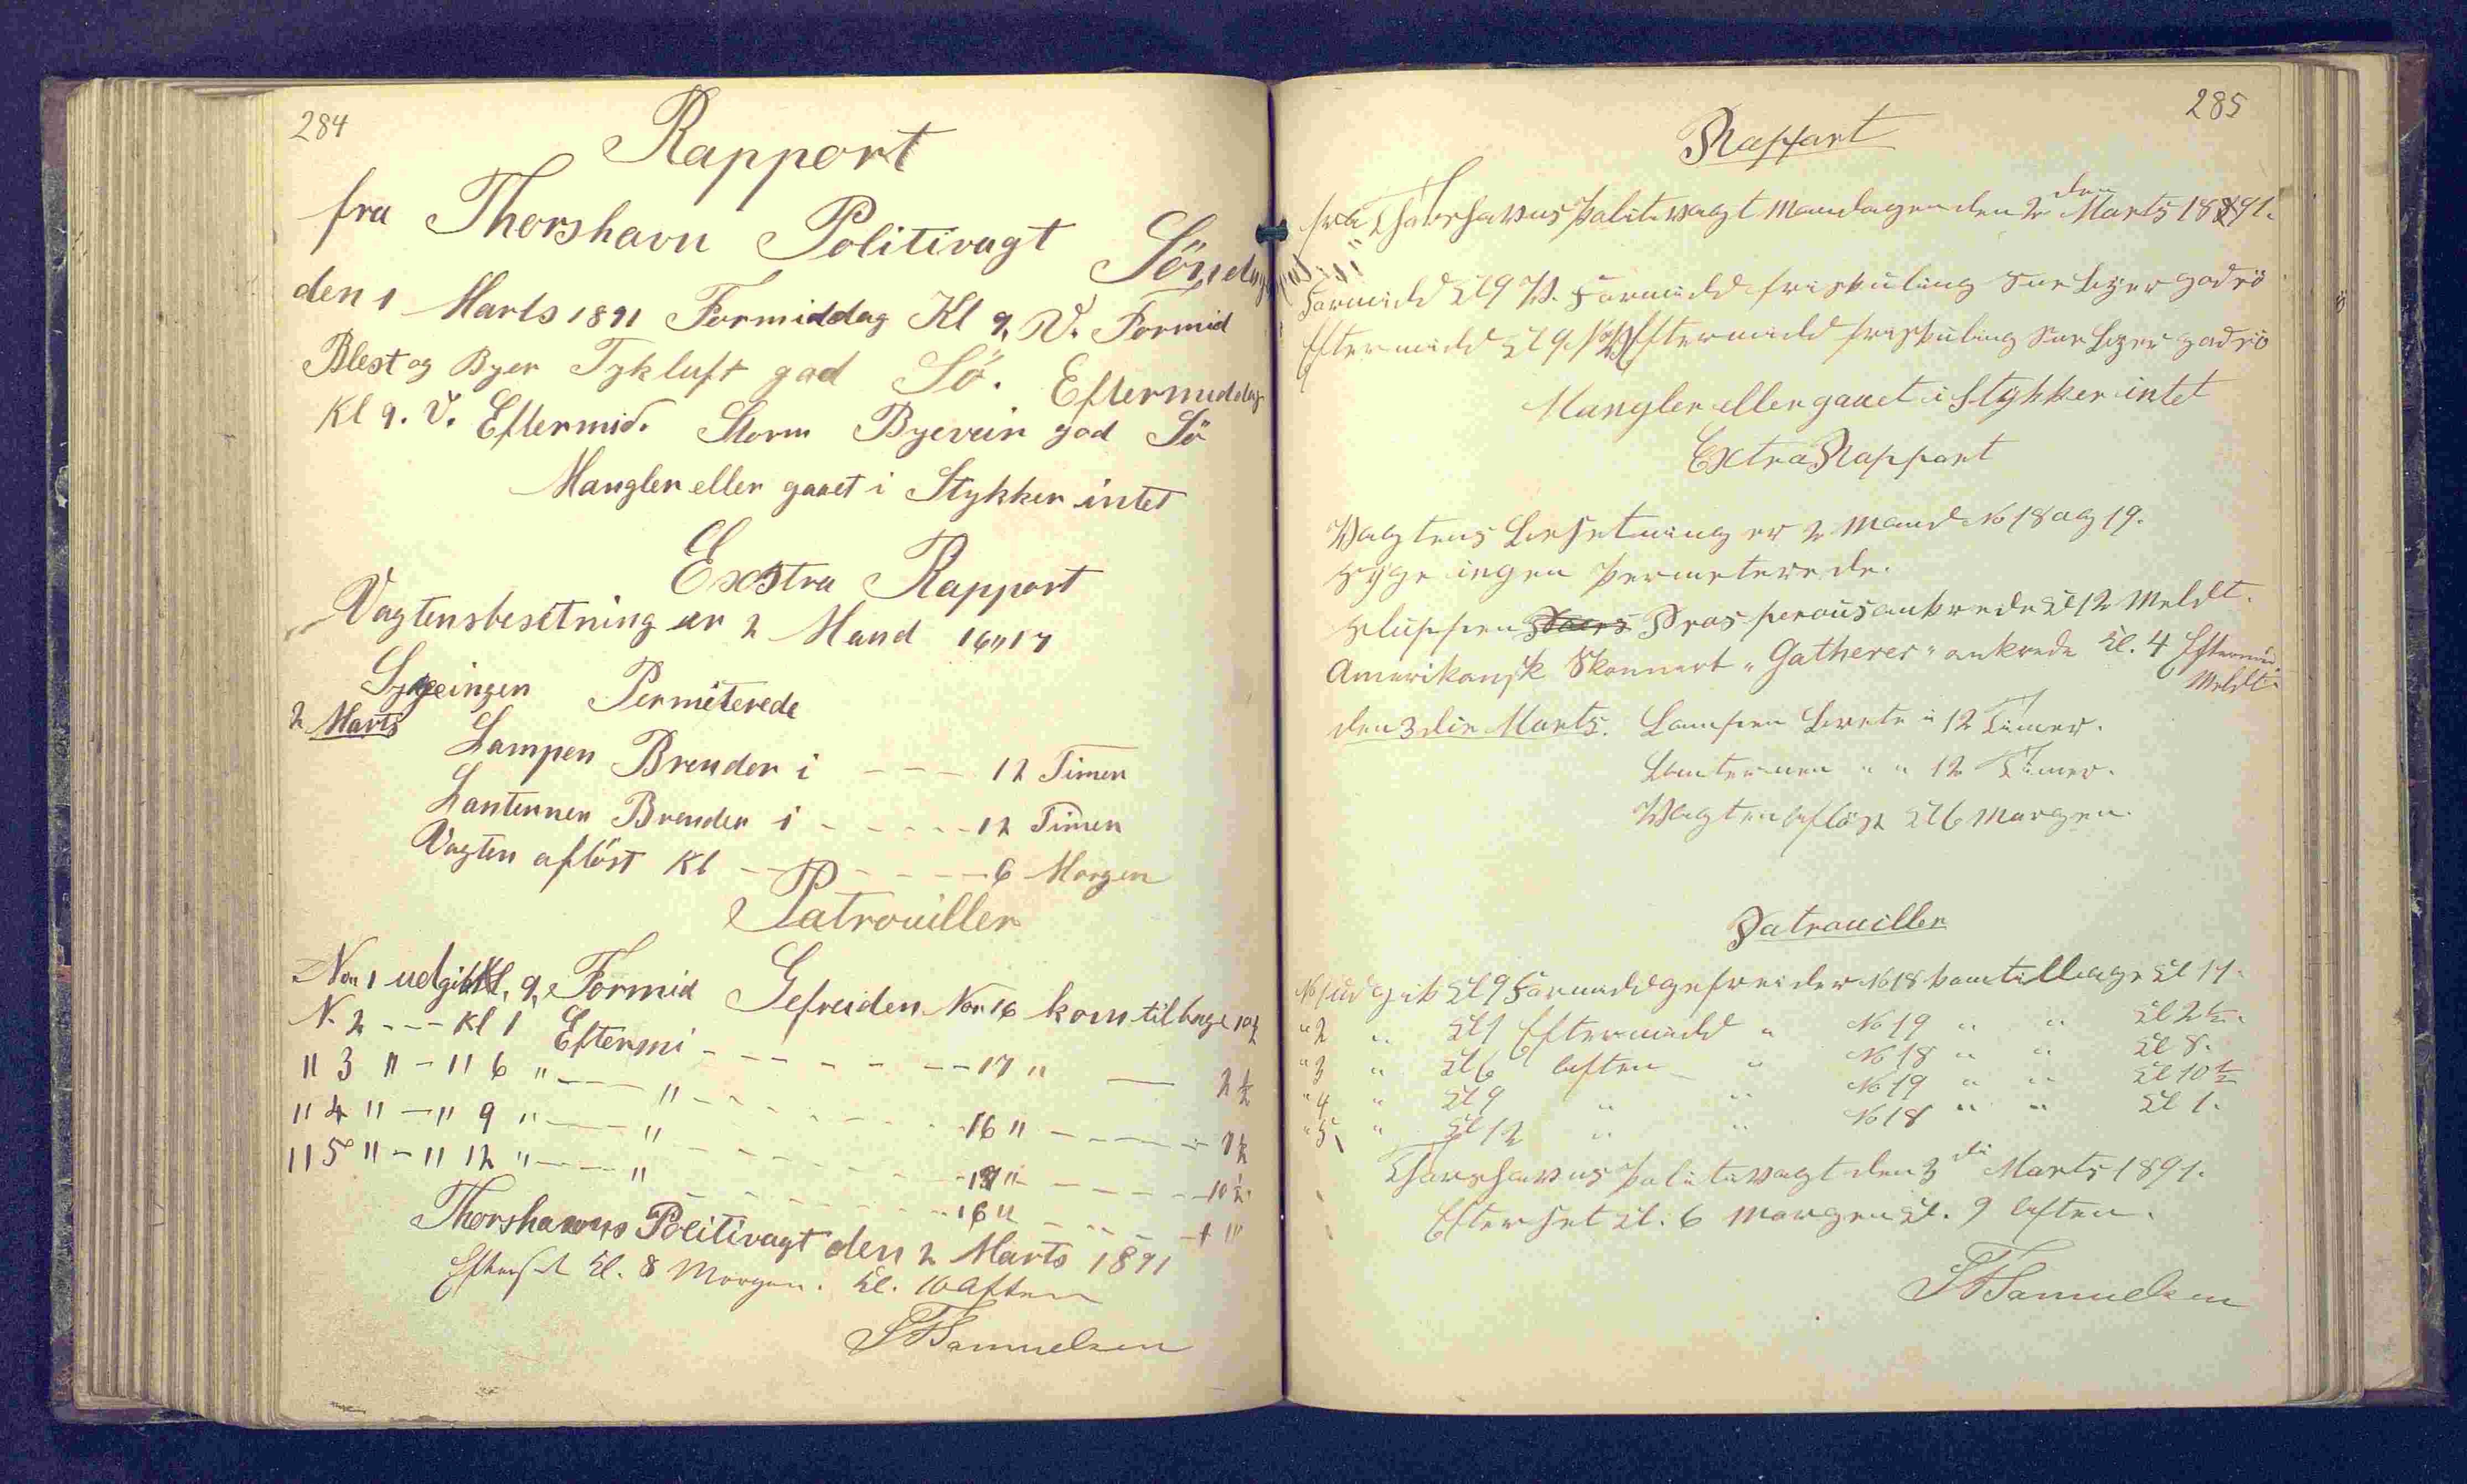 284
Rapport
fra Thorshavn Politivagt Söndag
den 1 Marts 1891 Formiddag Kl 9, V. Formid
Blest og Byer Tykluft god Sö. Eftermiddag
Kl 9. V. Eftermid. Storm Byeveir god Sö
Mangler eller gaaet i Stykker intet
Exstra Rapport
Vagtensbesetning er 2 Mand 16 " 17
Sygeingen Permiterede
2 Marts Lampen Brender i - - - 12 Timer
Lanternen Brender i - - - - - 12 Timer
Vagten aflöst Kl - - - - - - 6 Morgen
Patrouiller
Nor 1 udgik Kl, 9, Formid Gefreiden Nor 16 kom tilbage 10½
N. 2 - - - Kl 1 Eftermi - - - - - - 17 " — 2½
" 3 " - " 6 " - - - " - - - - - - 16 " - - - - - 7½
" 4 " - " 9 " - - - " - - - - - - 17 " - - - - - 10½
" 5 " - " 12 " - - - " - - - - - - 16 " - - - - 1 "
Thorshavns Politivagt den 2 Marts 1891
Efterset Kl. 8 Morgen. Kl. 10 Aften
Samuelsen
285
Rapport
fra Thorshavns Politivagt Mandagen den 2den Marts 1891.
Formidd Kl 9 V. Formidd friskuling Sne byer god sö
Eftermidd Kl 9. V Eftermidd friskuling Sne byer god sö
Mangler eller gaaet i Stykker intet
Extra Rapport
Vagtens besetning er 2 Mand No 18 og 19.
Syge ingen permeterede.
Sluppen Prosperous ankrede Kl 12 Meldt.
Amerikansk Skonnert "Gatherer" ankrede Kl. 4 Eftermid.
Meldt
den 3die Marts. Lampen brente i 12 Timer.
Lanternen " " 12 Timer.
Vagten aflöst Kl 6 Morgen.
Patrouiller
No 1 udgik Kl 9 Formidd gefreider No 18 kom tilbage Kl 11.
" 2 " Kl 1 Eftermidd " No 19 " " Kl 2½.
" 3 " Kl 6 Aften " No 18 " " Kl 8.
" 4 " Kl 9 " " No 19 " " Kl 10½
" 5 " Kl 12 " " No 18 " " Kl 1.
Thorshavns Politivagt den 3die Marts 1891.
Efterset Kl. 6 Morgen Kl. 9 Aften.
Samuelsen